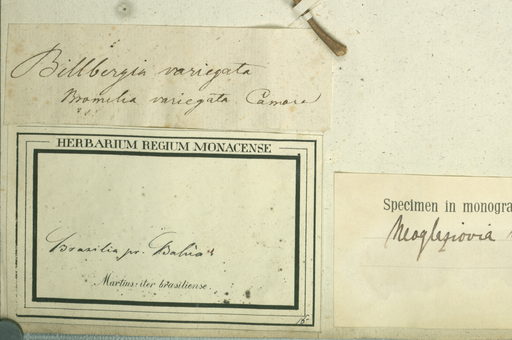 Billbergia variegata
Bromelia variegata Camara
HERBARIUM REGIUM MONACENSE
Brasilia pr. Bahia
Martius: iter brasiliense.
Specimen in monogra
Neoglaziovia